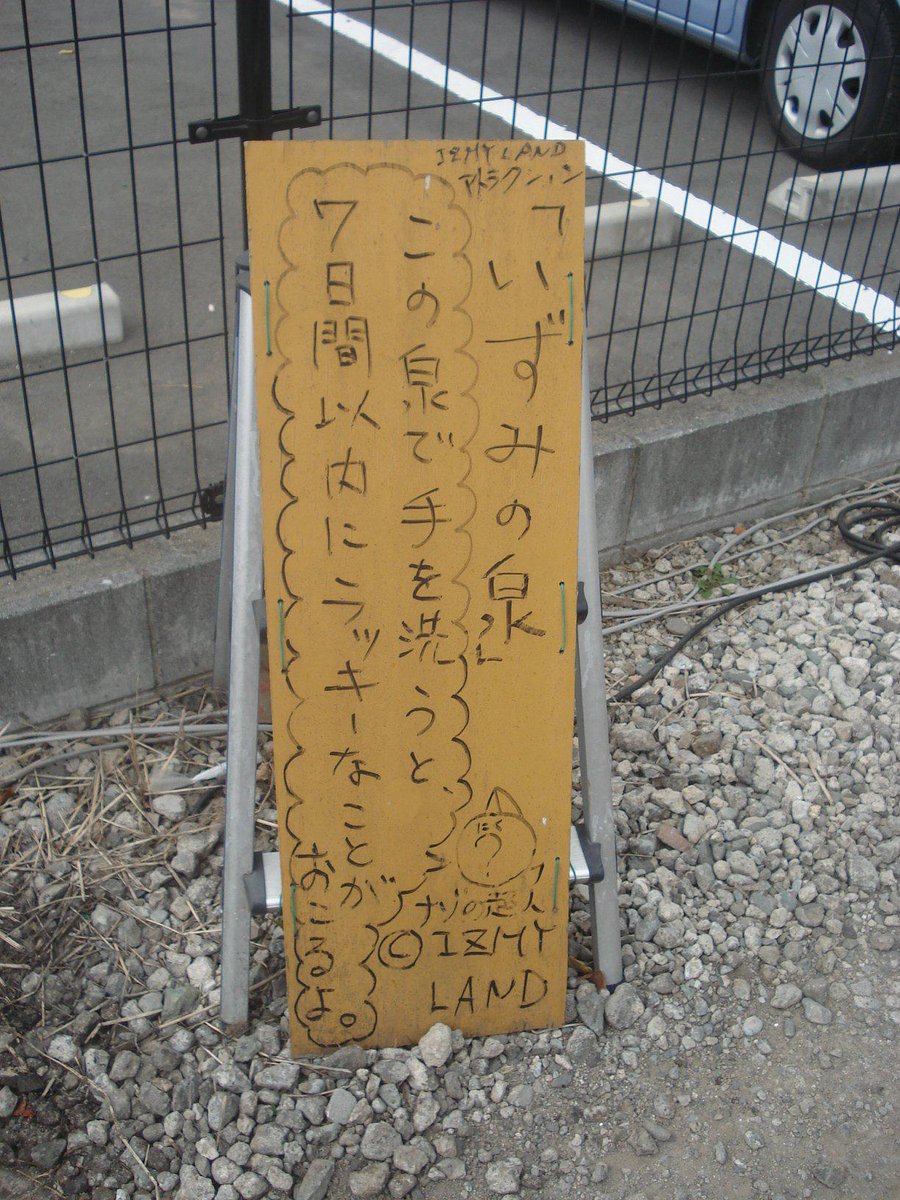 IZMY LAND
アトラクション
「いずみの泉」
この泉で手を洗うと、
7日間以内にラッキーなことが
おこるよ。
？
ナゾの超人
©IZMY
LAND